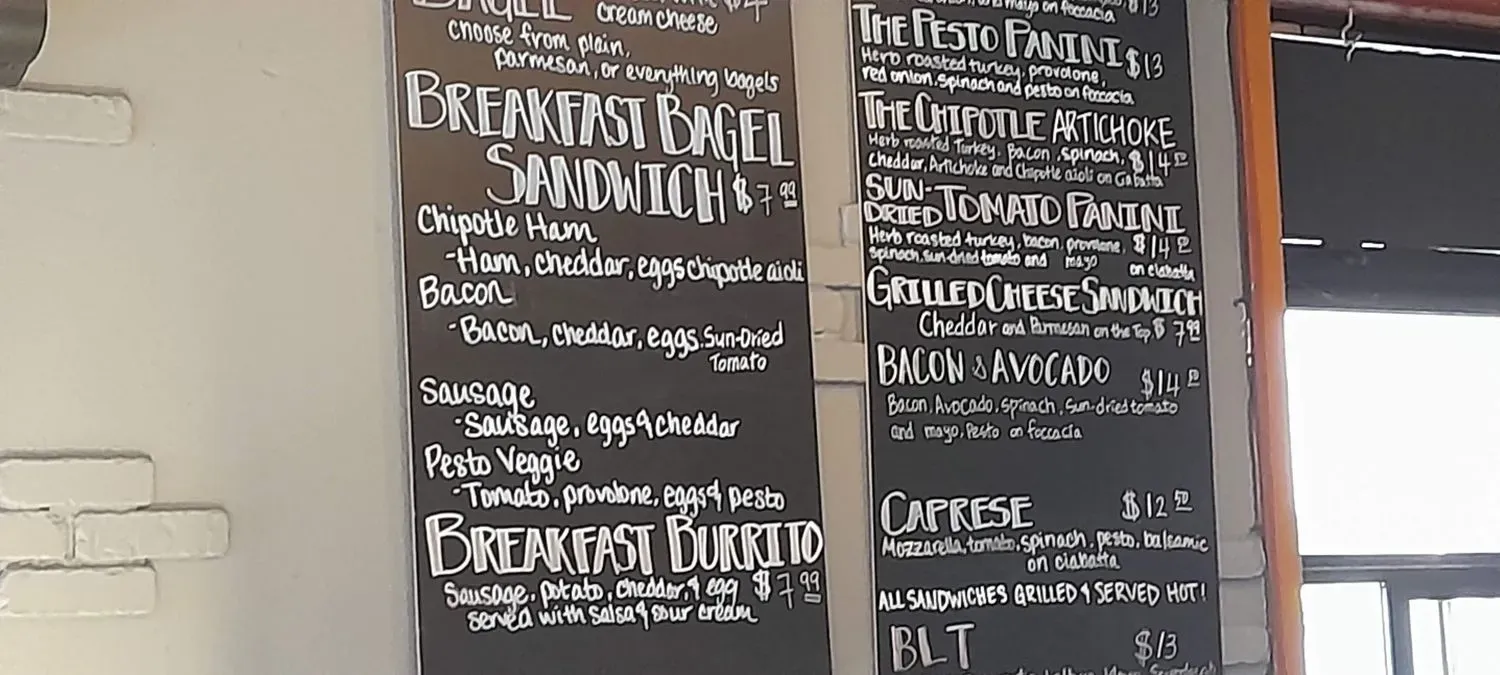 BAGEL
cream cheese
choose from plain,
parmesan, or everything bagels
BREAKFAST BAGEL
SANDWICH $7 99
Chipotle Ham
-Ham, cheddar, eggs chipotle aioli
Bacon
-Bacon, cheddar, eggs. Sun-Dried
Tomato
Sausage
-Sausage, eggs & cheddar
Pesto Veggie
-Tomato, provolone, eggs & pesto
BREAKFAST BURRITO
Sausage, potato, cheddar, & egg $7 99
served with salsa & sour cream
mayo on foccacia $13
THE PESTO PANINI $13
Herb roasted turkey, provolone,
red onion, spinach and pesto on foccacia
THE CHIPOTLE ARTICHOKE
Herb roasted Turkey, Bacon, spinach, $14
cheddar, Artichoke and Chipotle aioli on
SUN-
DRIED TOMATO PANINI
Herb roasted turkey, bacon, provolone, $14
spinach, sun-dried tomato and mayo
on ciabatta
GRILLED CHEESE SANDWICH
Cheddar and Parmesan on the Top $7 99
BACON & AVOCADO $14
Bacon, Avocado, Spinach, Sun-dried tomato
and mayo, Pesto on foccacia
CAPRESE $12 50
Mozzarella, tomato, spinach, pesto, balsamic
on ciabatta
ALL SANDWICHES GRILLED & SERVED HOT!
BLT $13